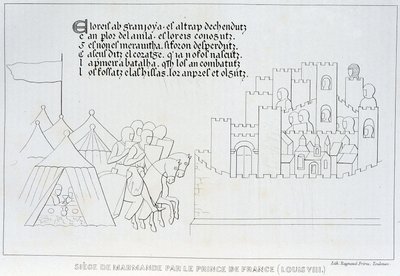 E loreis ab gran joya. es altrap dechendutz.
e an plor del es loreis conogutz.
E es nones meravilha. si foron desperdutz.
C ditz el coratge. q'ia nofos nascutz.
L a pmera batalha. los an combatutz.
L os fossatz elas lissas. lor an pres et
SIÈGE DE MARMANDE PAR LE PRINCE DE FRANCE (LOUIS VIII.)
Lith. Raynaud Frères, Toulouse.